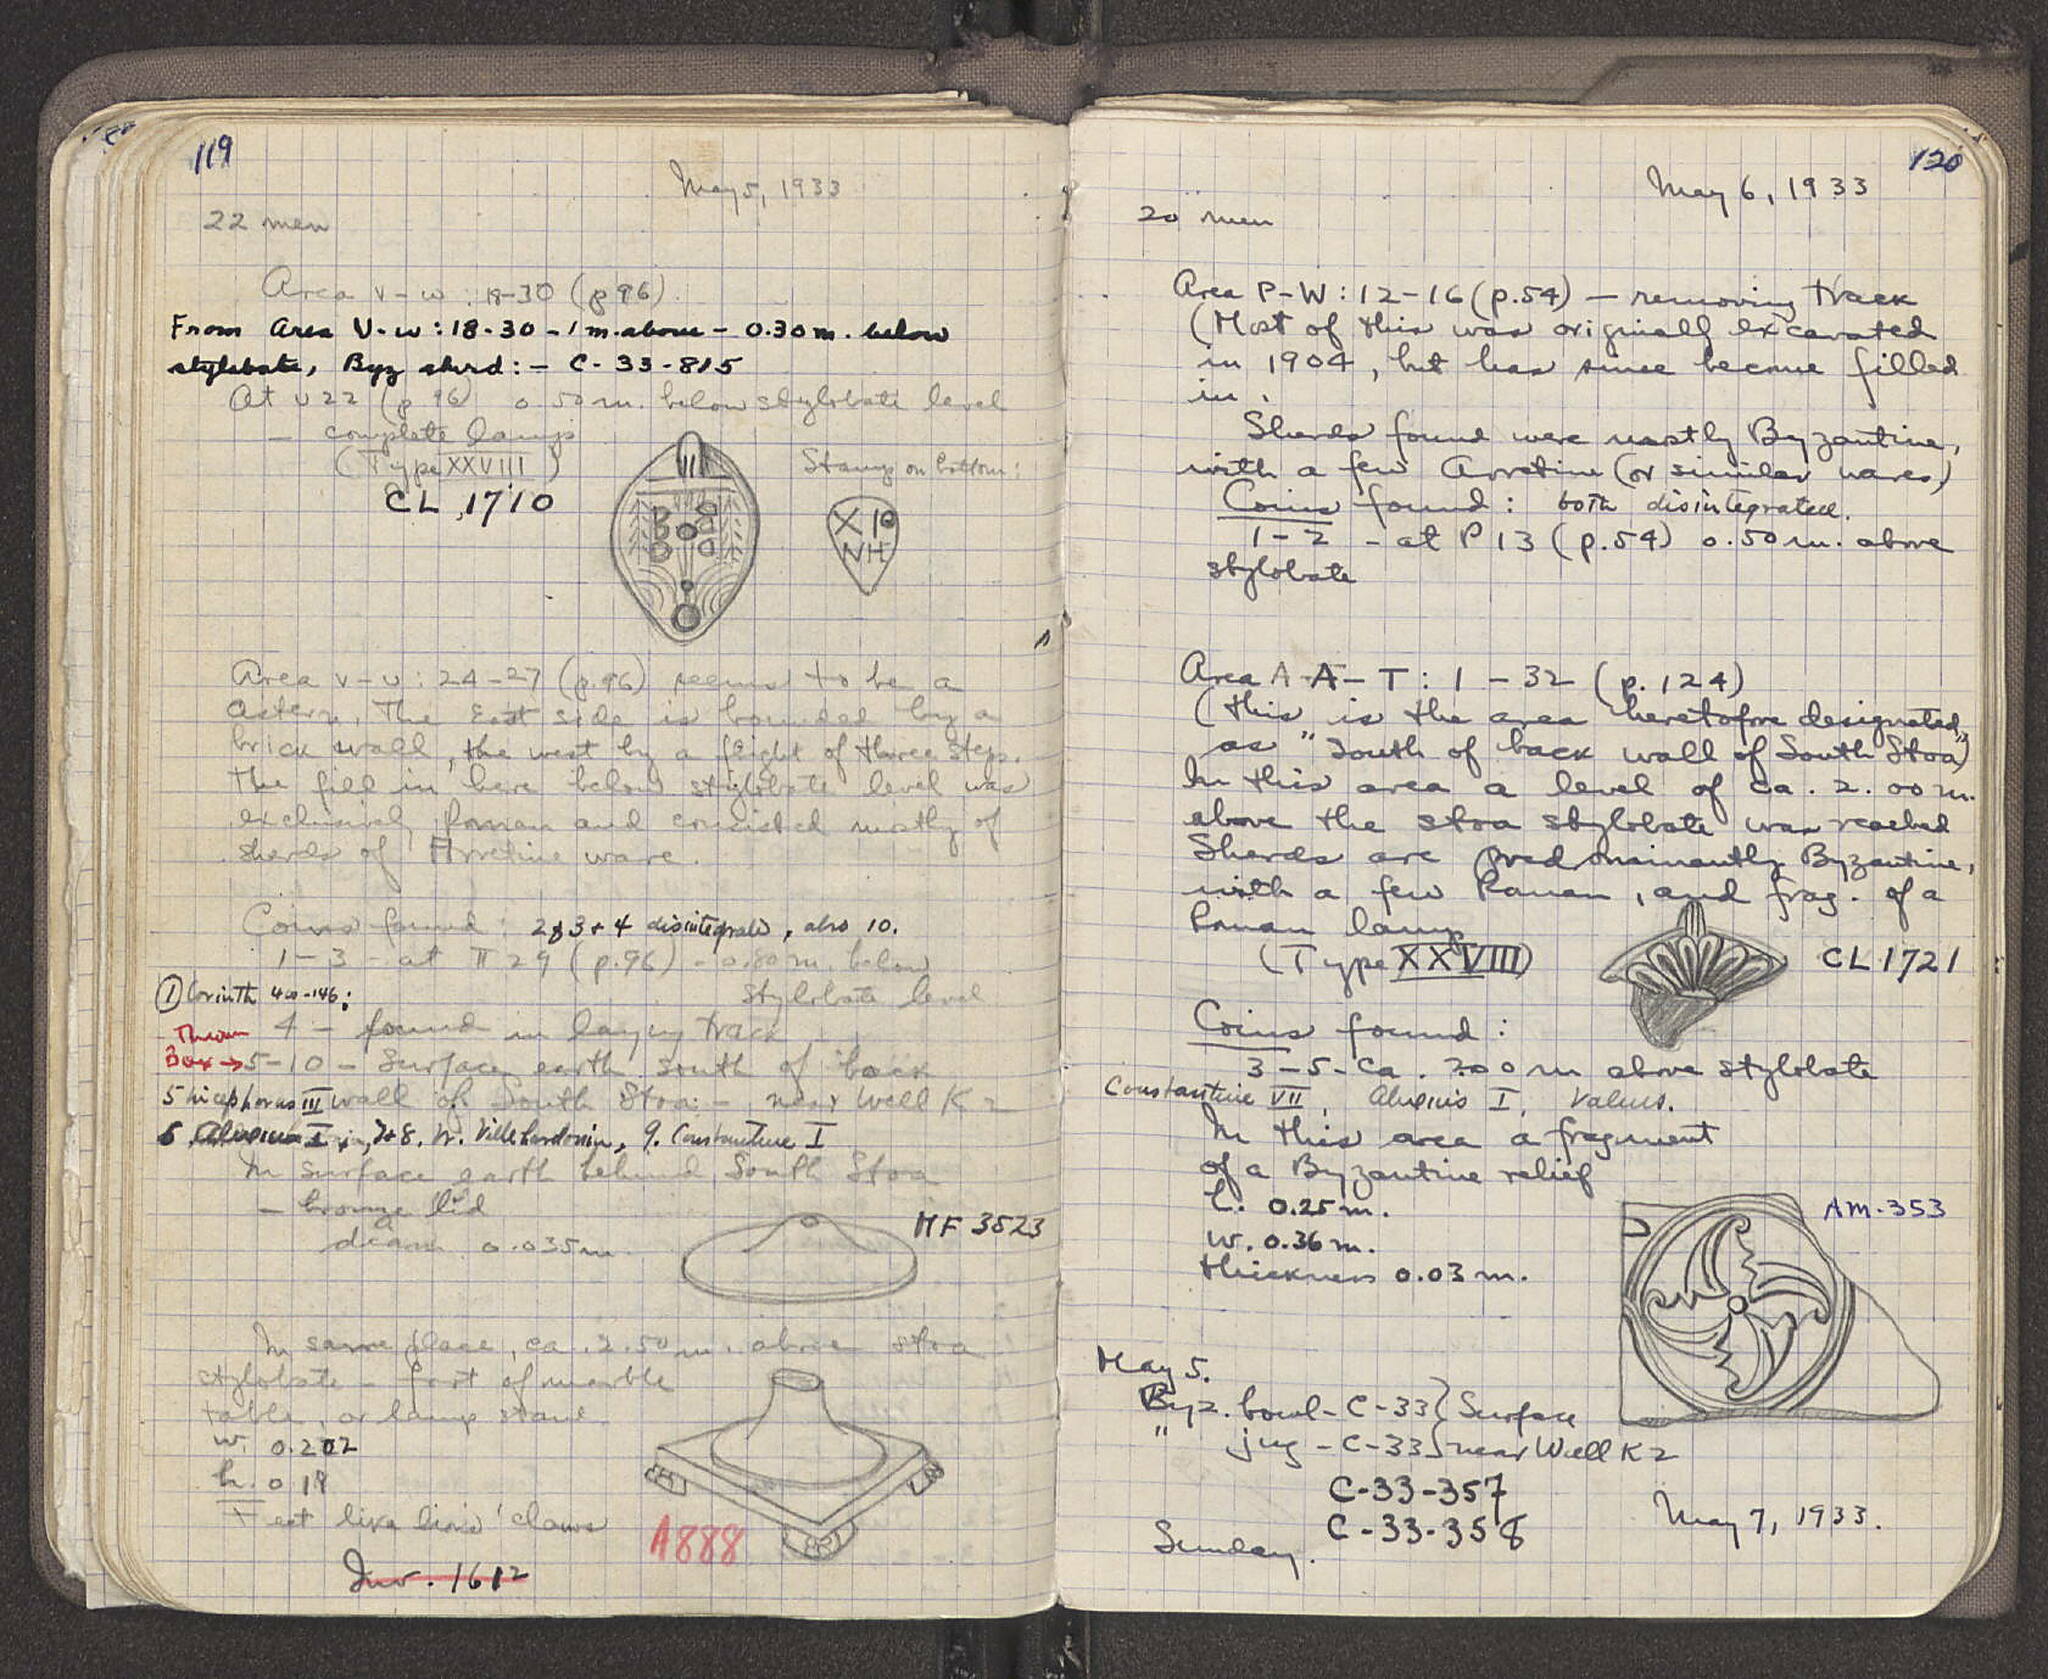 119
May 5, 1933
22 men
Area V-W: 18-30 (p 96)
From Area V-W: 18-30 - 1 m. above - 0.30 m. below
stylobate, Byz sherd: - C-33-815
At U 22 (p 96) 0.50 m. below stylobate level
- complete lamp
(Type XXVIII)
CL 1710
Stamp on bottom:
ΧΙΟ
ΝΗ
Area V-U: 24-27 (p. 96) seems to be a
cistern. The East side is bounded by a
brick wall, the west by a flight of three steps.
The fill in here below stylobate level was
exclusively Roman and consisted mostly of
sherds of Arretine ware.
Coins found: 2 & 3 + 4 disintegrated, also 10.
1-3 - at Π 29 (p. 96) - 0.80 m. below
stylobate level
① Corinth 400-146:
4 - found in laying track
Thrown
Box → 5-10 - Surface earth south of back
5 Nicephorus III wall of South Stoa - near Well K 2
6 Alexius I, 7+8, W. Villehardouin, 9. Constantine I
In surface earth behind South Stoa
- bronze lid
diam. 0.035 m.
MF 3523
In same place, ca. 2.50 m. above stoa
stylobate - foot of marble
table, or lamp stand
w. 0.202
h. 0.19
Feet like lion's claws
A888
Inv. 1612
120
May 6, 1933
20 men
Area P-W: 12-16 (p. 54) - removing track
(Most of this was originally excavated
in 1904, but has since become filled
in.
Sherds found were mostly Byzantine,
with a few Arretine (or similar wares)
Coins found: both disintegrated.
1-2 - at P 13 (p. 54) 0.50 m. above
stylobate
Area A-A-T: 1-32 (p. 124)
(this is the area heretofore designated
as "South of back wall of South Stoa")
In this area a level of ca. 2.00 m.
above the stoa stylobate was reached
Sherds are predominantly Byzantine,
with a few Roman, and frag. of a
Roman lamp
(Type XXVIII)
CL 1721
Coins found:
3-5 - Ca. 2.00 m above stylobate
Constantine VII, Alexius I, Valens.
In this area a fragment
of a Byzantine relief
h. 0.25 m.
w. 0.36 m.
thickness 0.03 m.
AM-353
May 5.
Byz. bowl - C-33 } Surface
" jug - C-33 } near Well K 2
C-33-357
C-33-358
May 7, 1933.
Sunday.